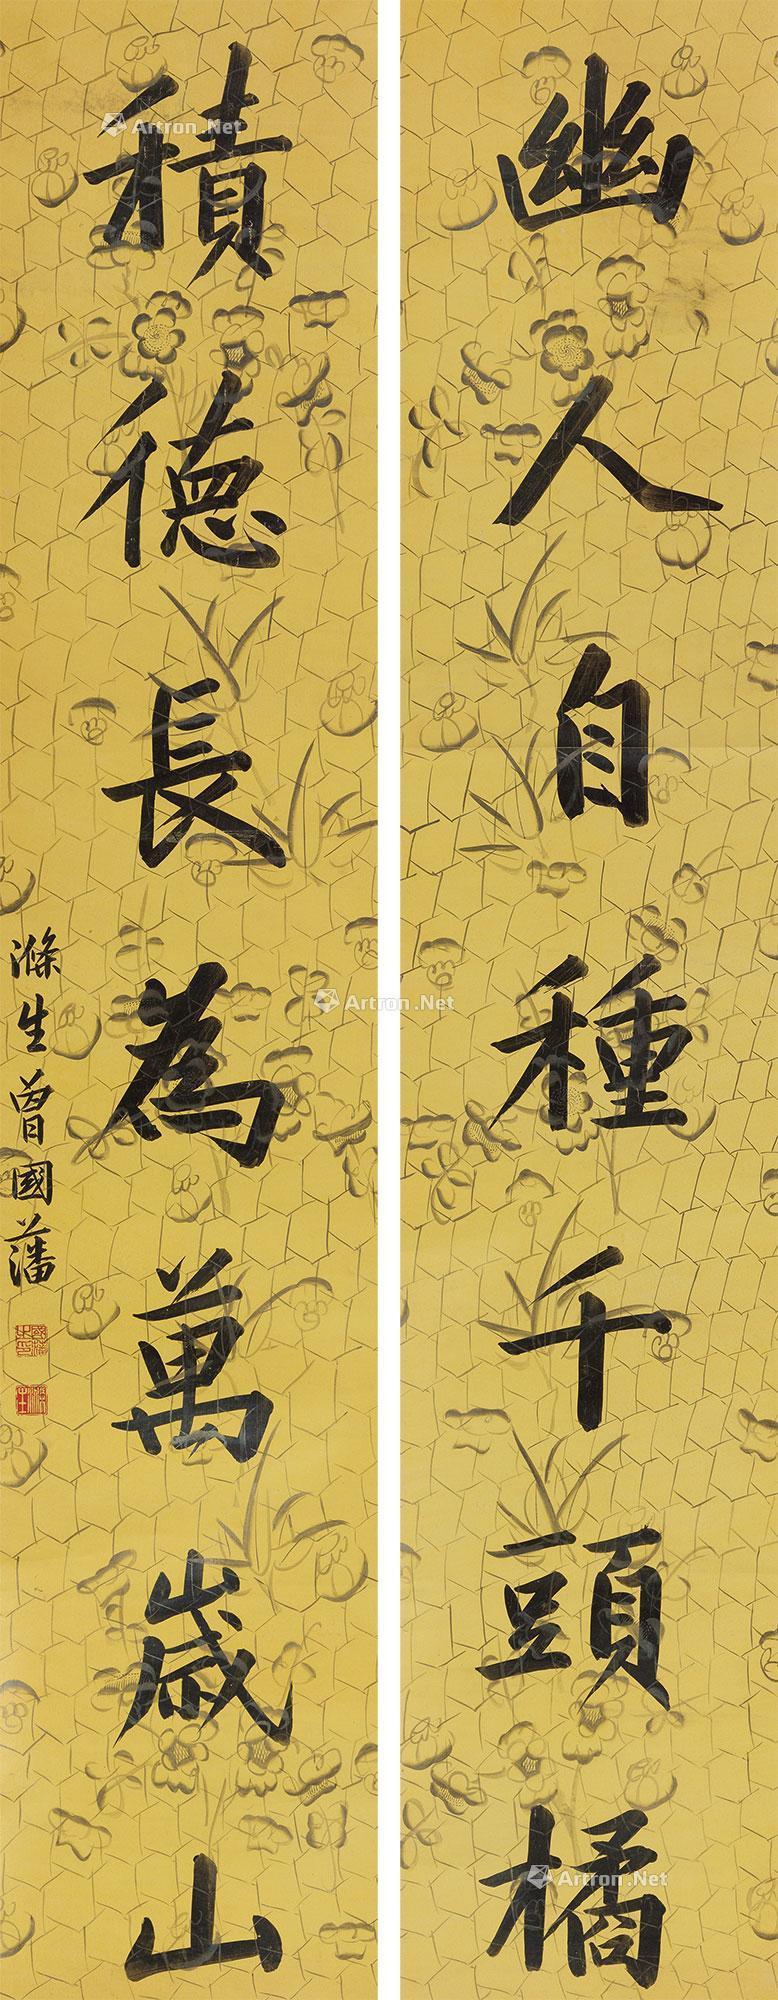 幽人自種千頭橘
積德長為萬歲山
滌生曾國藩
國藩之印
滌生
Artron.Net
Artron.Net
Artron.Net